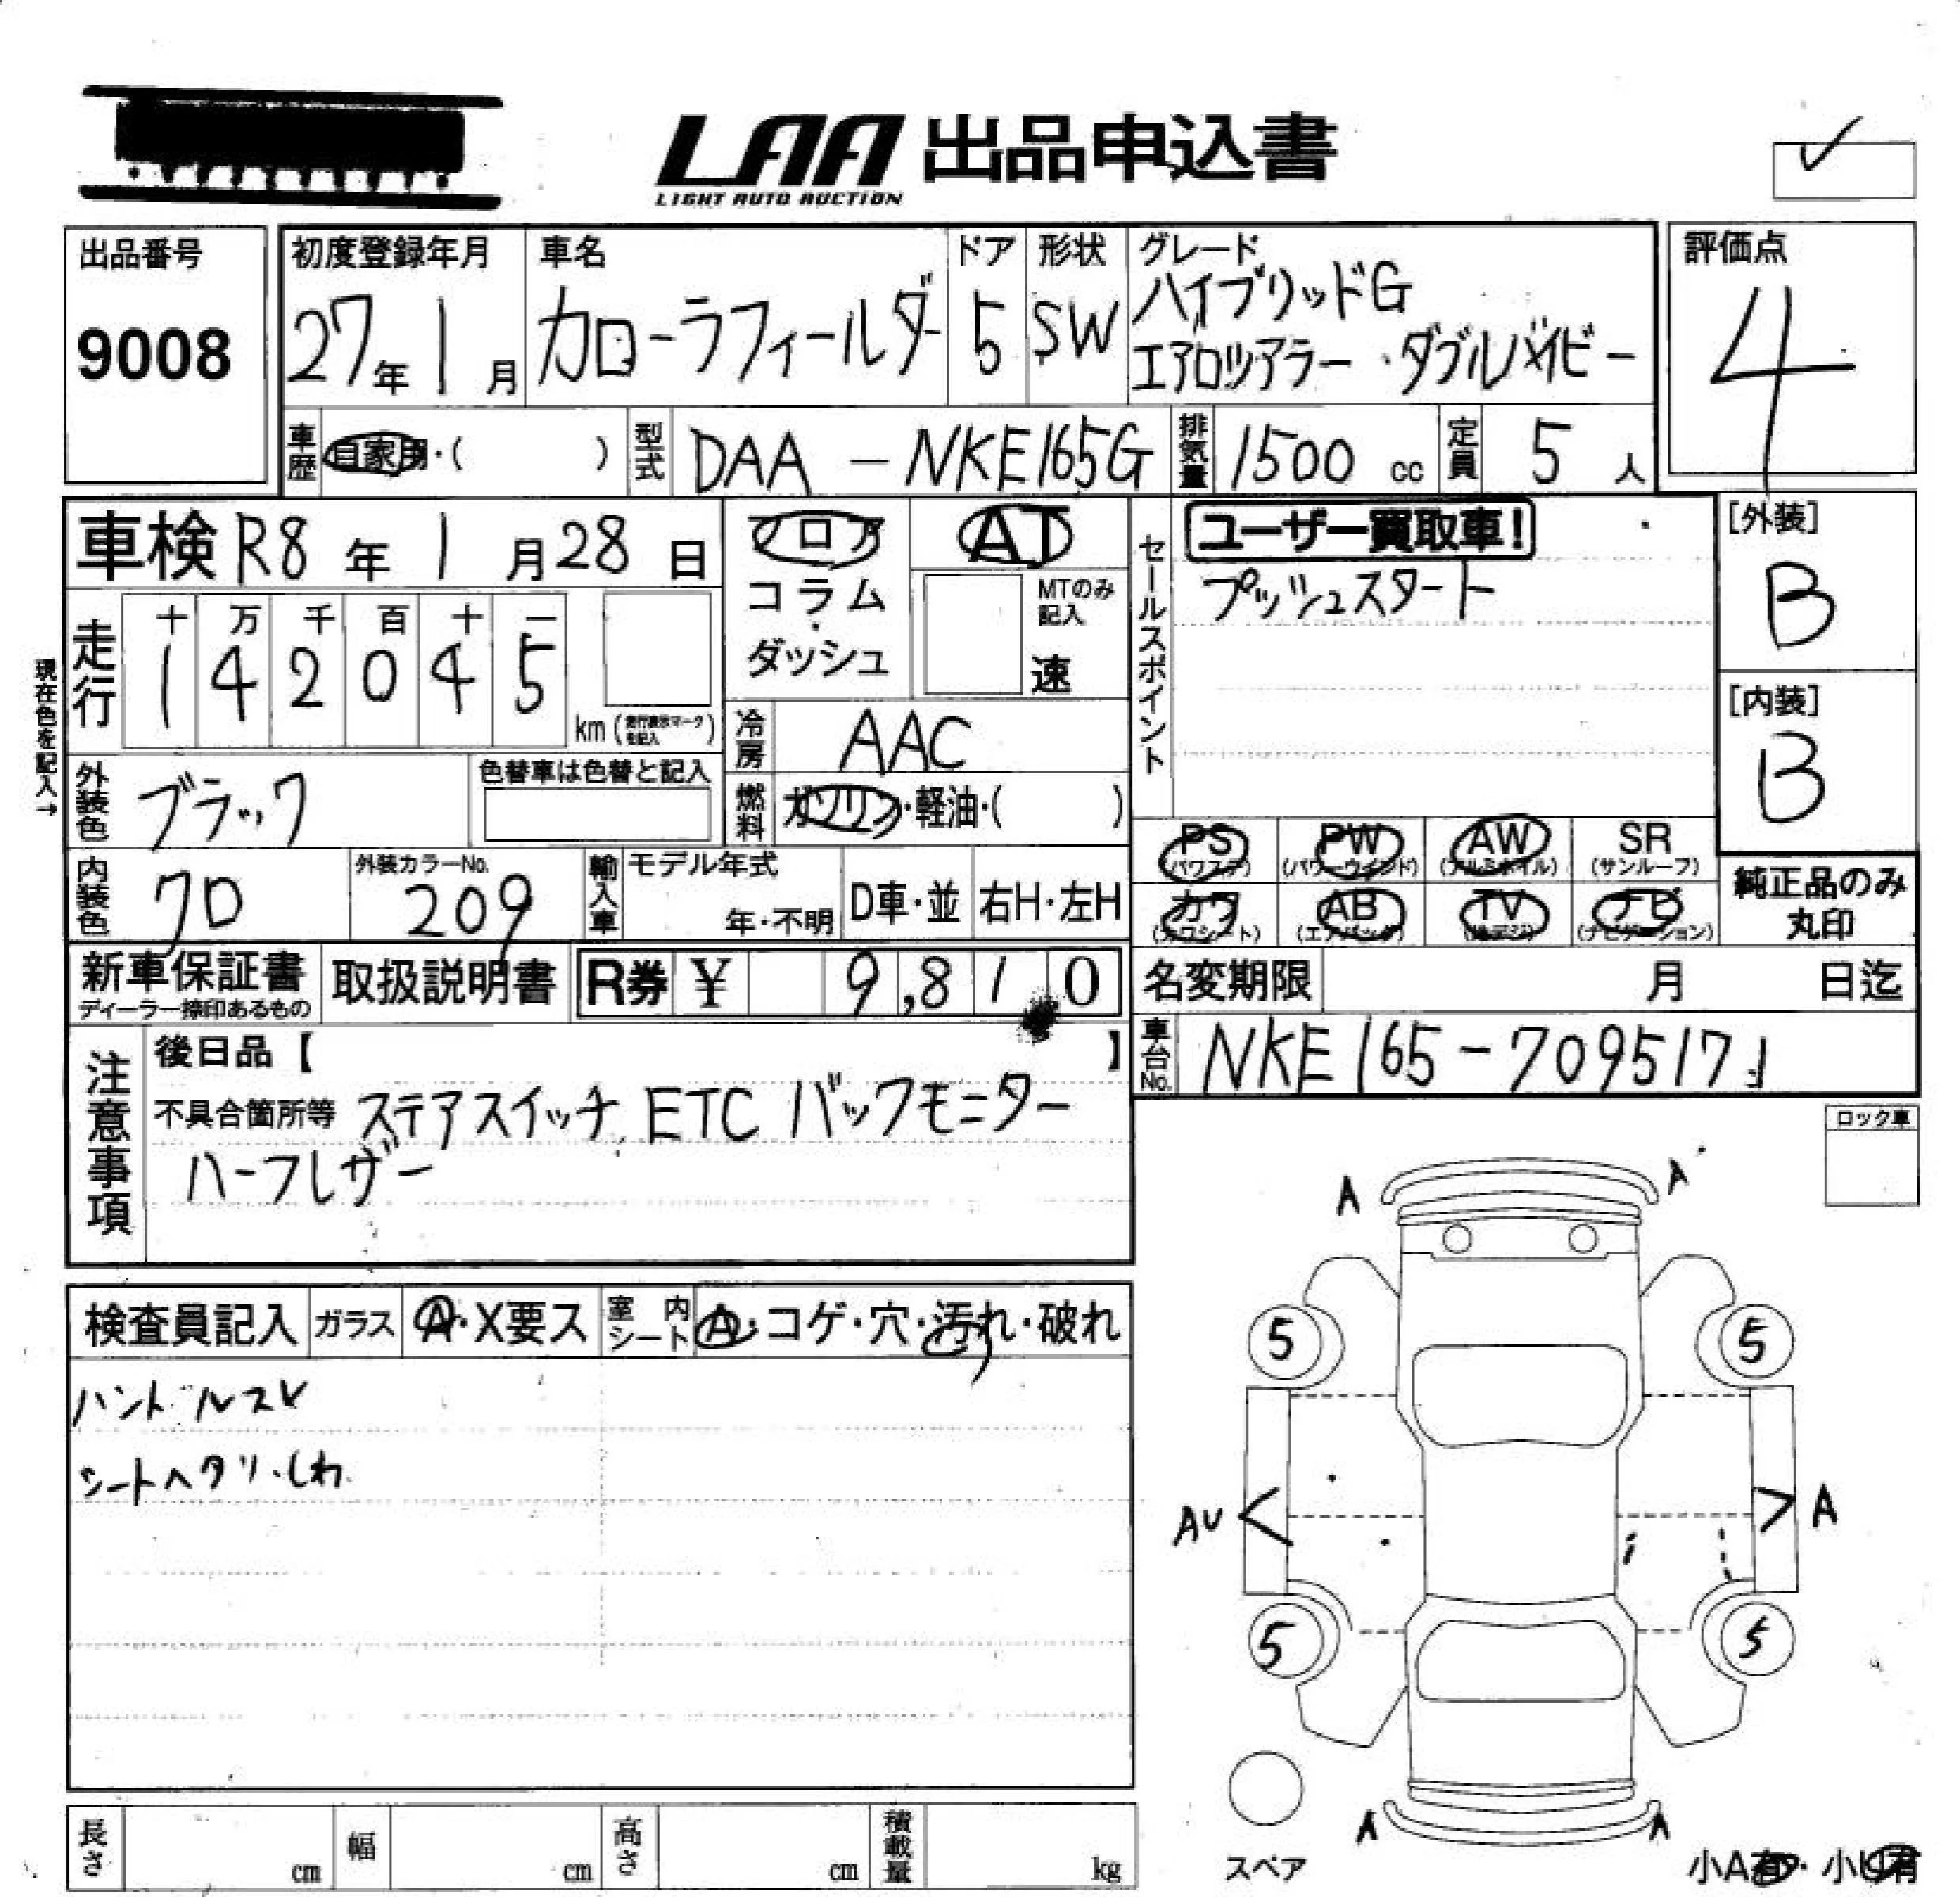 LAA 出品申込書
LIGHT AUTO AUCTION
出品番号
9008
初度登録年月
27年1月
車名
カローラフィールダー
ドア
5
形状
SW
グレード
ハイブリッドG
エアロツアラー・ダブルバイビー
評価点
4
車歴 自家用・( )
型式 DAA-NKE165G
排気量 1500 cc
定員 5 人
車検 R8年1月28日
フロア
コラム
・
ダッシュ
AT
MTのみ記入
速
現在色を記入→
走行
十 万 千 百 十 一
1 4 2 0 4 5
km(走行表示マークを記入)
冷房 AAC
燃料 ガソリン・軽油・( )
外装色 ブラック
色替車は色替と記入
内装色 クロ
外装カラーNo.
209
輸入車
モデル年式
年・不明
D車・並
右H・左H
セールスポイント
ユーザー買取車!
プッシュスタート
[外装]
B
[内装]
B
PS(パワステ) PW(パワーウインド) AW(アルミホイル) SR(サンルーフ)
カワ(カワシート) AB(エアバッグ) TV(地デジ) ナビ(ナビゲーション)
純正品のみ
丸印
新車保証書
ディーラー捺印あるもの
取扱説明書
R券 ¥ 9,810
名変期限 月 日迄
車台No. NKE165-7095171」
注意事項
後日品【 】
不具合箇所等 ステアスイッチ, ETC バックモニター
ハーフレザー
ロック車
検査員記入
ガラス A・X要ス
室内シート A・コゲ・穴・汚れ・破れ
ハンドルスレ
シートヘタリ・しわ
A A
5 5
AU A
5 5
A A
スペア
小A有・小U有
長さ cm
幅 cm
高さ cm
積載量 kg